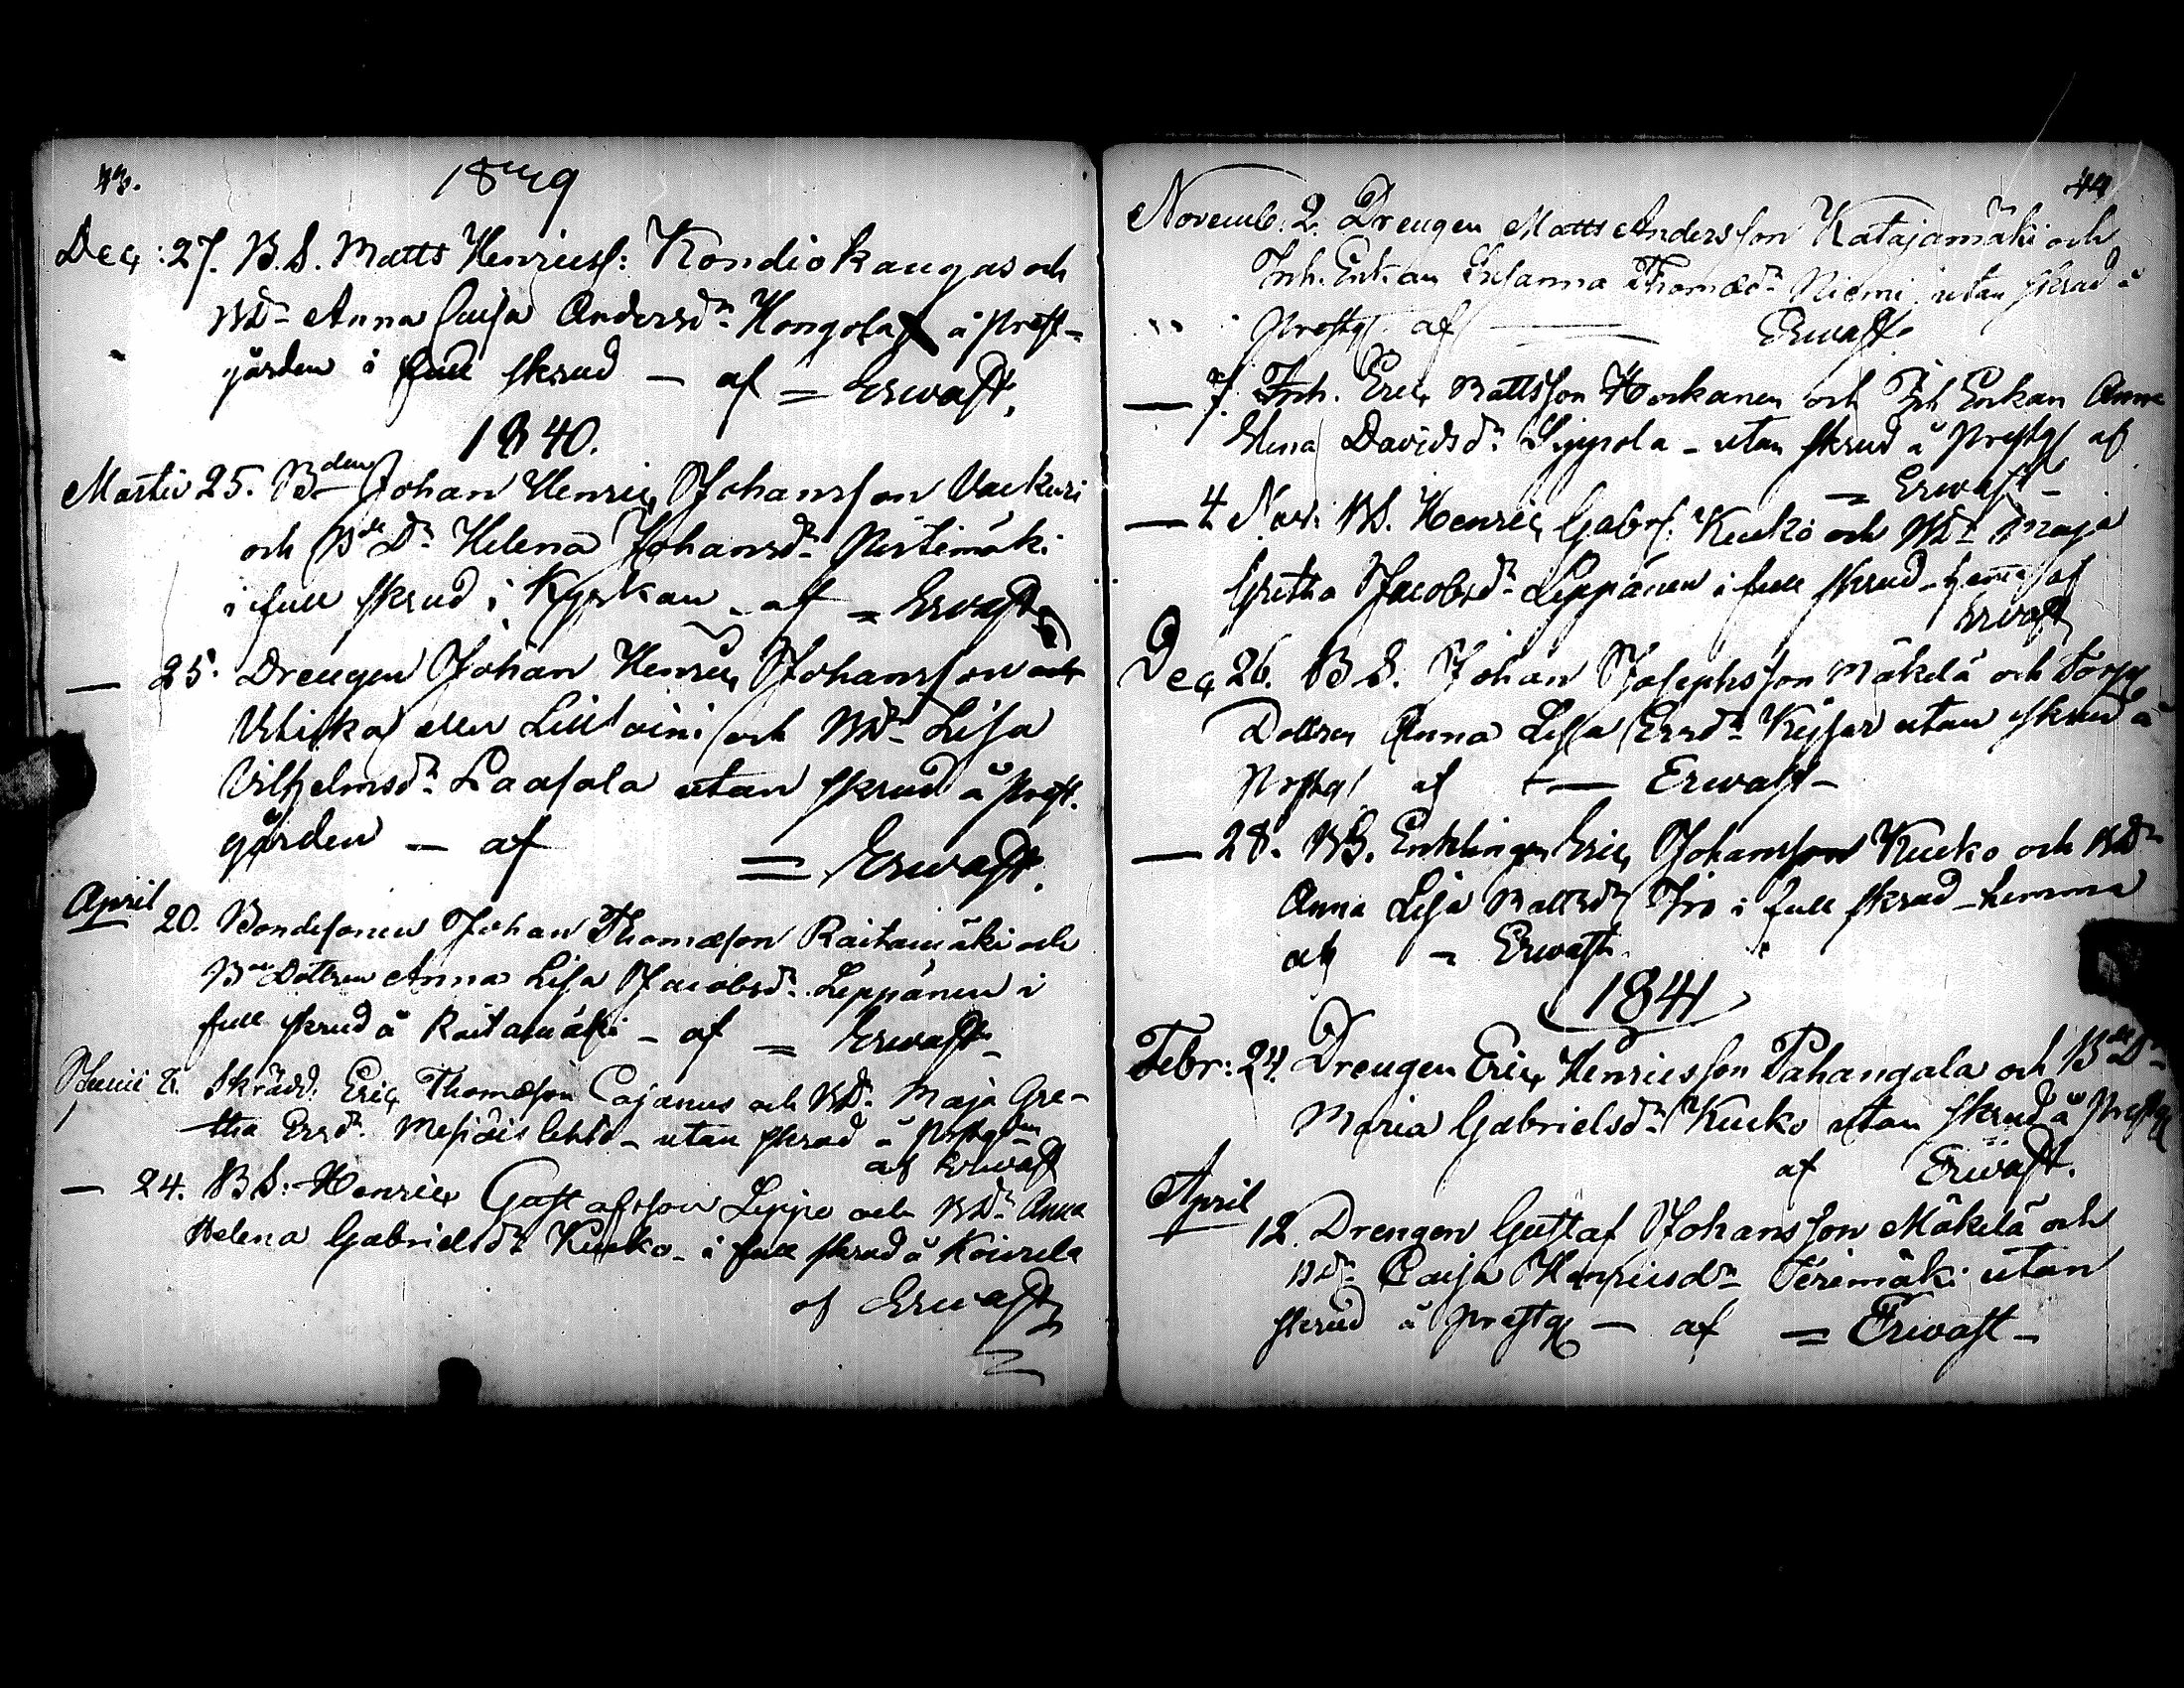 43.
1839
Dec: 27. B.S. Matts Henricss: Kondiokangas och
BDr Anna Caisa Andersdr Hongola å Prest-
gården i full skrud — af = Erwast.
1840.
Martii 25. Bden Johan Henric Johansson Vackuri
och Bde Dr Helena Johansdr Ristimäki
i full skrud i Kyrkan - af = Erwast
— 25. Drengen Johan Henric Johansson och
eller Lilltoini och BDr Lisa
Vilhelmsdr Laasala utan skrud å Prest-
gården — af = Erwast.
April
20. Bondesonen Johan Thomæson Raitamäki och
Bde Dottren Anna Lisa Jacobsdr Leppänen i
full skrud å Raitamäki — af = Erwast
Junii 2. Skrädd: Eric Thomæson Cajanus och BDr Maja Gre-
tha Ersdr Mesiäislehto - utan skrud å Prstgden
af Erwast
— 24. BS: Henric Gustafsson Leppe och BDr Anna
Helena Gabrielsdr Kucko - i full skrud å Koivula
af Erwast
44
Novemb: 2. Drengen Matts Andersson Katajamäki och
Inh. Enkan Susanna Thomædr Niemi utan skrud å
Prestg af — Erwast
— 7. Inh. Eric Mattsson Horkanen och Inh Enkan Anna
Elena Davidsdr Lippola - utan skrud å Prestg af
= Erwast
— 4 Nov: BS. Henric Gabrs: Kucko och BDr Maja
Gretha Jacobsdr Leppänen i full skrud - hemma af
Erwast
Dec 26. B S. Johan Josephsson Mäkelä och Torp
Dottren Anna Lisa Ersdr Keisar utan skrud å
Prstg af — Erwast —
— 28. BS. Enklingen Eric Johansson Kucko och BDr
Anna Lisa Mattsdr Iso i full skrud - hemma
af = Erwast.
1841
Febr: 24. Drengen Eric Henricsson Pahangala och Bde Dr
Maria Gabrielsdr Kucko utan skrud å Prestg
af Erwast.
April
12. Drengen Gustaf Johansson Mäkelä och
BDr Caisa Henricsdr Terimäki utan
skrud å Prestg — af = Erwast —